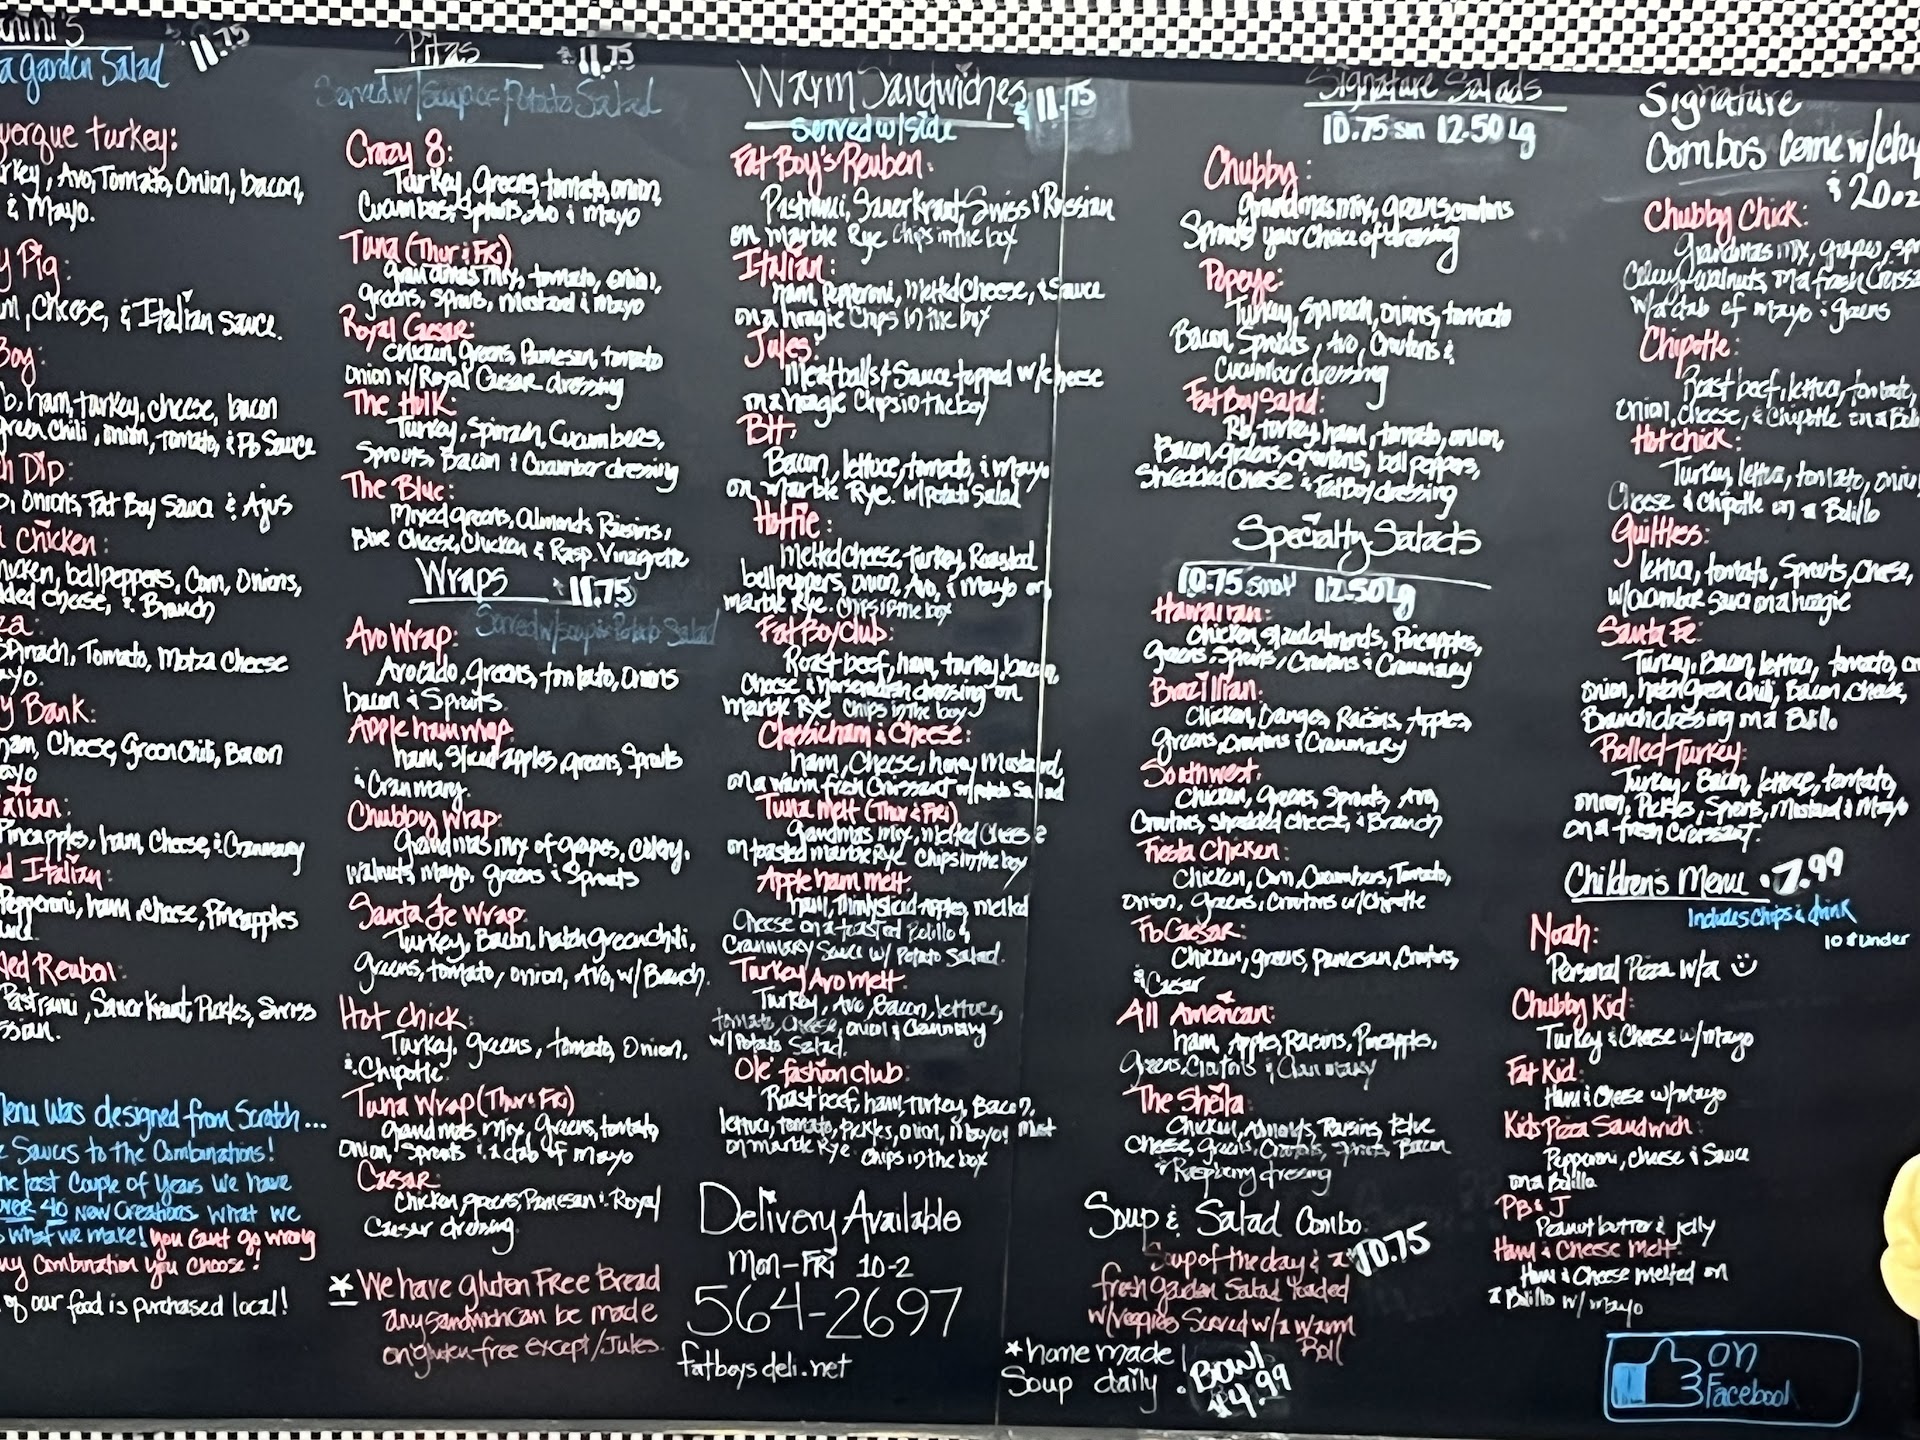 11.75
a garden Salad
uerque turkey:
rkey, Avo, Tomato, Onion, bacon,
& Mayo.
y Pig:
m, Cheese, & Italian Sauce.
Boy:
b, ham, turkey, cheese, bacon
green Chili, onion, tomato, & Fb Sauce
h Dip:
, Onions, Fat Boy Sauce & Ajus
Chicken:
hicken, bellpeppers, Corn, Onions,
ded cheese, & Branch
za:
Spinach, Tomato, Motza Cheese
ayo.
y Bank:
ham, Cheese, Green Chili, Bacon
ayo
talian:
Pineapples, ham, Cheese, & Cranmary
d Italian:
Pepperoni, ham, cheese, Pineapples
led Reuben:
Pastrami, Sauer Kraut, Pickles, Swiss
ssian.
Menu was designed from Scratch...
e Sauces to the Combinations!
he past Couple of years we have
over 40 new Creations. What we
s what we make! you can't go wrong
ny Combination you Choose!
of our food is purchased local!
Pitas $11.75
Served w/ soup or Potato Salad
Crazy 8:
Turkey, Greens, tomato, onion,
Cucumbers, Sprouts, Avo & Mayo
Tuna (Thur & Fri)
Grandmas mix, tomato, onion,
greens, sprouts, mustard & mayo
Royal Caesar:
Chicken, greens, Parmesan, tomato
onion w/ Royal Caesar dressing
The Hulk:
Turkey, Spinach, Cucumbers,
Sprouts, Bacon & Cucumber dressing
The Blue:
Mixed greens, Almonds, Raisins,
Blue Cheese, Chicken & Rasp. Vinaigrette
Wraps 11.75
Served w/ soup or Potato Salad
Avo Wrap:
Avocado, greens, tomato, Onions
bacon & Sprouts.
Apple ham wrap
ham, Sliced apples, greens, Sprouts
& Cranmary.
Chubby Wrap:
Grandmas mix of grapes, celery,
walnuts, mayo, greens & Sprouts
Santa Fe Wrap
Turkey, Bacon, hatch green chili,
greens, tomato, onion, Avo, w/ Branch.
Hot chick:
Turkey, greens, tomato, Onion,
& Chipotle.
Tuna Wrap (Thur & Fri)
Grandmas mix, Greens, tomato,
onion, Sprouts & a dab of Mayo
Caesar:
Chicken, greens, Parmesan & Royal
Caesar dressing.
* We have gluten Free Bread
any sandwich can be made
on gluten-free except / Jules.
Warm Sandwiches $11.75
Served w/ side
Fat Boy's Reuben:
Pastrami, Sauer Kraut, Swiss & Russian
on marble Rye Chips in the box
Italian:
ham, Pepperoni, Melted Cheese, & Sauce
on a hoagie Chips in the box
Jules:
Meatballs & Sauce topped w/ cheese
on a hoagie Chips in the box
Blt:
Bacon, lettuce, tomato, & mayo
on Marble Rye. w/ potato Salad
Hottie:
Melted cheese, turkey, Roasted
bell peppers, onion, Avo, & Mayo on
marble Rye. Chips in the box
Fat Boy Club:
Roast beef, ham, turkey, bacon,
Cheese & horseradish dressing on
marble Rye Chips in the box
Classic ham & Cheese:
ham, Cheese, honey Mustard,
on a warm fresh Croissant w/ potato Salad
Tuna melt (Thur & Fri)
Grandmas mix, melted Cheese &
on toasted marble Rye Chips in the box
Apple ham melt
ham, Thinly sliced Apples, melted
Cheese on a toasted Bolillo &
Cranmary Sauce w/ Potato Salad.
Turkey Avo melt:
Turkey, Avo, Bacon, lettuce,
tomato, Cheese, onion & Cranmary
w/ Potato Salad.
Ole' fashion club:
Roast beef, ham, turkey, Bacon,
lettuce, tomato, Pickles, onion, mayo & Must
on marble Rye. Chips in the box
Delivery Available
Mon-Fri 10-2
564-2697
fatboysdeli.net
Signature Salads
10.75 sm 12.50 lg
Chubby:
Grandmas mix, greens, croutons
Sprouts, your choice of dressing
Popeye:
Turkey, Spinach, onions, tomato
Bacon, Sprouts, Avo, Croutons &
Cucumber dressing
Fat Boy Salad:
Rb, turkey, ham, tomato, onion,
Bacon, greens, croutons, bell peppers,
Shredded cheese & Fat Boy dressing
Specialty Salads
10.75 small 12.50 lg
Hawaiian:
Chicken, sliced almonds, Pineapples,
greens, Sprouts, Croutons & Cranmary
Brazillian:
Chicken, Oranges, Raisins, Apples,
greens, Croutons & Cranmary
Southwest:
Chicken, Greens, Sprouts, Avo,
Croutons, shredded cheese, & Branch
Fiesta Chicken:
Chicken, Corn, Cucumbers, Tomato,
onion, greens, Croutons w/ Chipotle
Fb Caesar:
Chicken, greens, parmesan, Croutons,
& Caesar
All American:
ham, Apples, Raisins, Pineapples,
Greens, Croutons & Cranmary
The Sheila:
Chicken, Almonds, Raisins, Blue
Cheese, Greens, Croutons, Sprouts, Bacon
& Raspberry dressing
Soup & Salad Combo
10.75
Soup of the day & a
fresh garden Salad loaded
w/ veggies Served w/ a warm
Roll
* home made
Soup daily.
Bowl
$4.99
Signature
Combos come w/ chip
& 20 oz
Chubby Chick:
Grandmas mix, grapes, spr
Celery, walnuts, on a fresh Croissa
w/ a dab of mayo & greens
Chipotle:
Roast beef, lettuce, tomato,
onion, cheese, & Chipotle on a Boli
Hot chick:
Turkey, lettuce, tomato, onion
Cheese & Chipotle on a Bolillo
Guiltless:
lettuce, tomato, Sprouts, Cheese,
w/ cucumber sauce on a hoagie
Santa Fe:
Turkey, Bacon, lettuce, tomato,
onion, hatch green chili, Bacon, cheese,
Branch dressing on a Bolillo
Rolled Turkey:
Turkey, Bacon, lettuce, tomato,
onion, Pickles, Sprouts, Mustard & Mayo
on a fresh Croissant.
Children's Menu 7.99
Includes chips & drink
10 & under
Noah:
Personal Pizza w/ a
Chubby Kid:
Turkey & Cheese w/ mayo
Fat Kid:
Ham & Cheese w/ mayo
Kids Pizza Sandwich:
Pepperoni, cheese & Sauce
on a Bolillo
PB & J
Peanut butter & jelly
Ham & Cheese Melt:
Ham & Cheese melted on
a Bolillo w/ mayo
on
Facebook